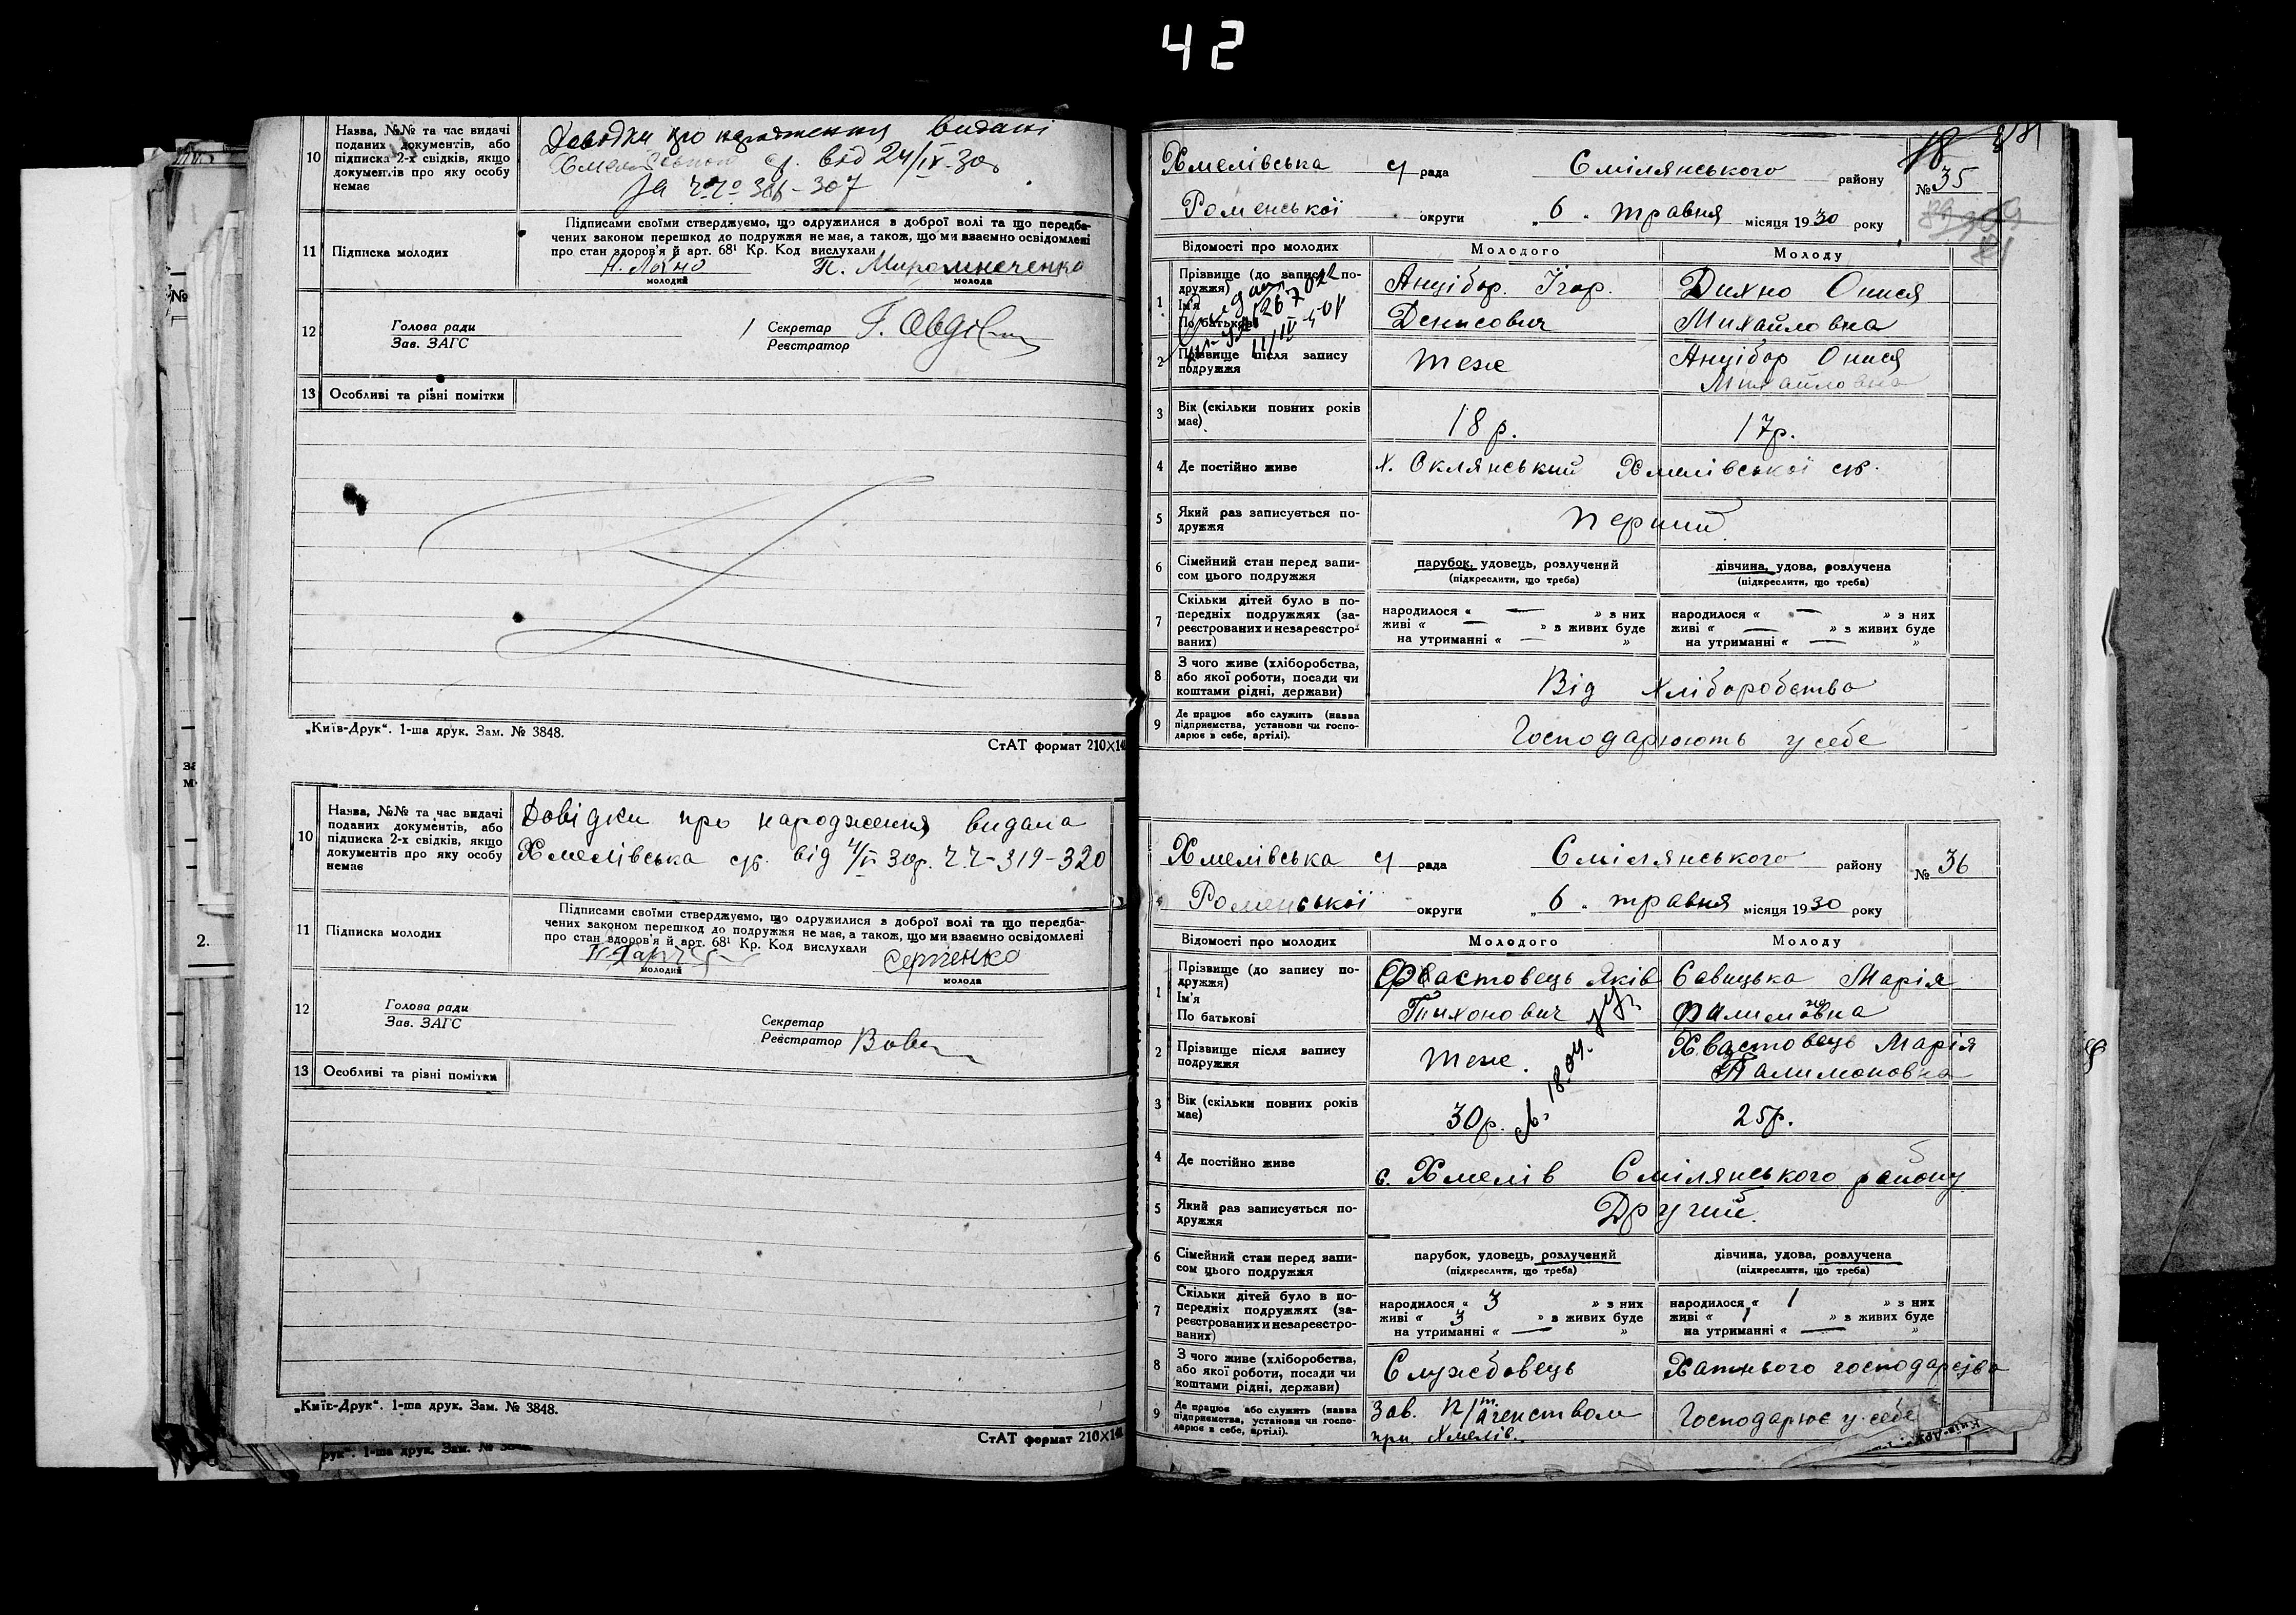 42
10 Назва, №№ та час видачі
поданих документів, або
підписка 2-х свідків, якщо
документів про яку особу
немає
Довідки про народження видані
від 24/IV-30
за ч.ч. 306-307
11 Підписка молодих
Підписами своїми стверджуємо, що одружилися з доброї волі та що передба-
чених законом перешкод до подружжя не має, а також, що ми взаємно освідомлені
про стан здоров'я й арт. 68¹ Кр. Код вислухали
П. Мирошниченко
молодий молода
12 Голова ради
Зав. ЗАГС
Секретар
Реєстратор
13 Особливі та різні помітки
„Київ-Друк“. 1-ша друк. Зам. № 3848.
СтАТ формат 210×14
10 Назва, №№ та час видачі
поданих документів, або
підписка 2-х свідків, якщо
документів про яку особу
немає
Довідки про народження видана
Хмелівська с/р. від 4/V 30р. ч.ч-319-320
11 Підписка молодих
Підписами своїми стверджуємо, що одружилися з доброї волі та що передба-
чених законом перешкод до подружжя не має, а також, що ми взаємно освідомлені
про стан здоров'я й арт. 68¹ Кр. Код вислухали
Сергіенко
молодий молода
12 Голова ради
Зав. ЗАГС
Секретар
Реєстратор
13 Особливі та різні помітки
„Київ-Друк“. 1-ша друк. Зам. № 3848.
СтАТ формат 210×14
2.
Хмелівська с рада Смілянського району № 35
Роменської округи „6“ травня місяця 1930 року
Відомості про молодих Молодого Молоду
1 Прізвище (до запису по-
дружжя)
Ім'я
По батькові
Анцібор. Ігор. Дихно Онися
Денисович Михайловна
2 Прізвище після запису
подружжя
теж Анцібор Онися
Михайловна
3 Вік (скільки повних років
має)
18 р. 17р.
4 Де постійно живе
х. Оклянський Хмелівської с/р.
5 Який раз записується по-
дружжя
перший
6 Сімейний стан перед запи-
сом цього подружжя
парубок, удовець, розлучений дівчина, удова, розлучена
(підкреслити, що треба) (підкреслити, що треба)
7 Скільки дітей було в по-
передніх подружжях (за-
реєстрованих и незареєстро-
ваних)
народилося « — » з них народилося « — » з них
живі « — » з живих буде живі « — » з живих буде
на утриманні « — » на утриманні « — »
8 З чого живе (хліборобства,
або якої роботи, посади чи
коштами рідні, держави)
Від хліборобства
9 Де працює або служить (назва
підприємства, установи чи госпо-
дарює в себе, артілі).
Господарюють у себе
Хмелівська с рада Смілянського району № 36
Роменської округи „6“ травня місяця 1930 року
Відомості про молодих Молодого Молоду
1 Прізвище (до запису по-
дружжя)
Ім'я
По батькові
Хвастовець Яків Савицька Марія
Тихонович
2 Прізвище після запису
подружжя
теж. Хвастовець Марія
Палимоновна
3 Вік (скільки повних років
має)
30р. 25р.
4 Де постійно живе
с. Хмелів Смілянського району
5 Який раз записується по-
дружжя
Другий.
6 Сімейний стан перед запи-
сом цього подружжя
парубок, удовець, розлучений дівчина, удова, розлучена
(підкреслити, що треба) (підкреслити, що треба)
7 Скільки дітей було в по-
передніх подружжях (за-
реєстрованих и незареєстро-
ваних)
народилося « 3 » з них народилося « 1 » з них
живі « 3 » з живих буде живі « 1 » з живих буде
на утриманні « — » на утриманні « — »
8 З чого живе (хліборобства,
або якої роботи, посади чи
коштами рідні, держави)
Службовець Хатнього господарства
9 Де працює або служить (назва
підприємства, установи чи госпо-
дарює в себе, артілі).
Зав. п/т агенством Господарює у себе
при Хмелів.